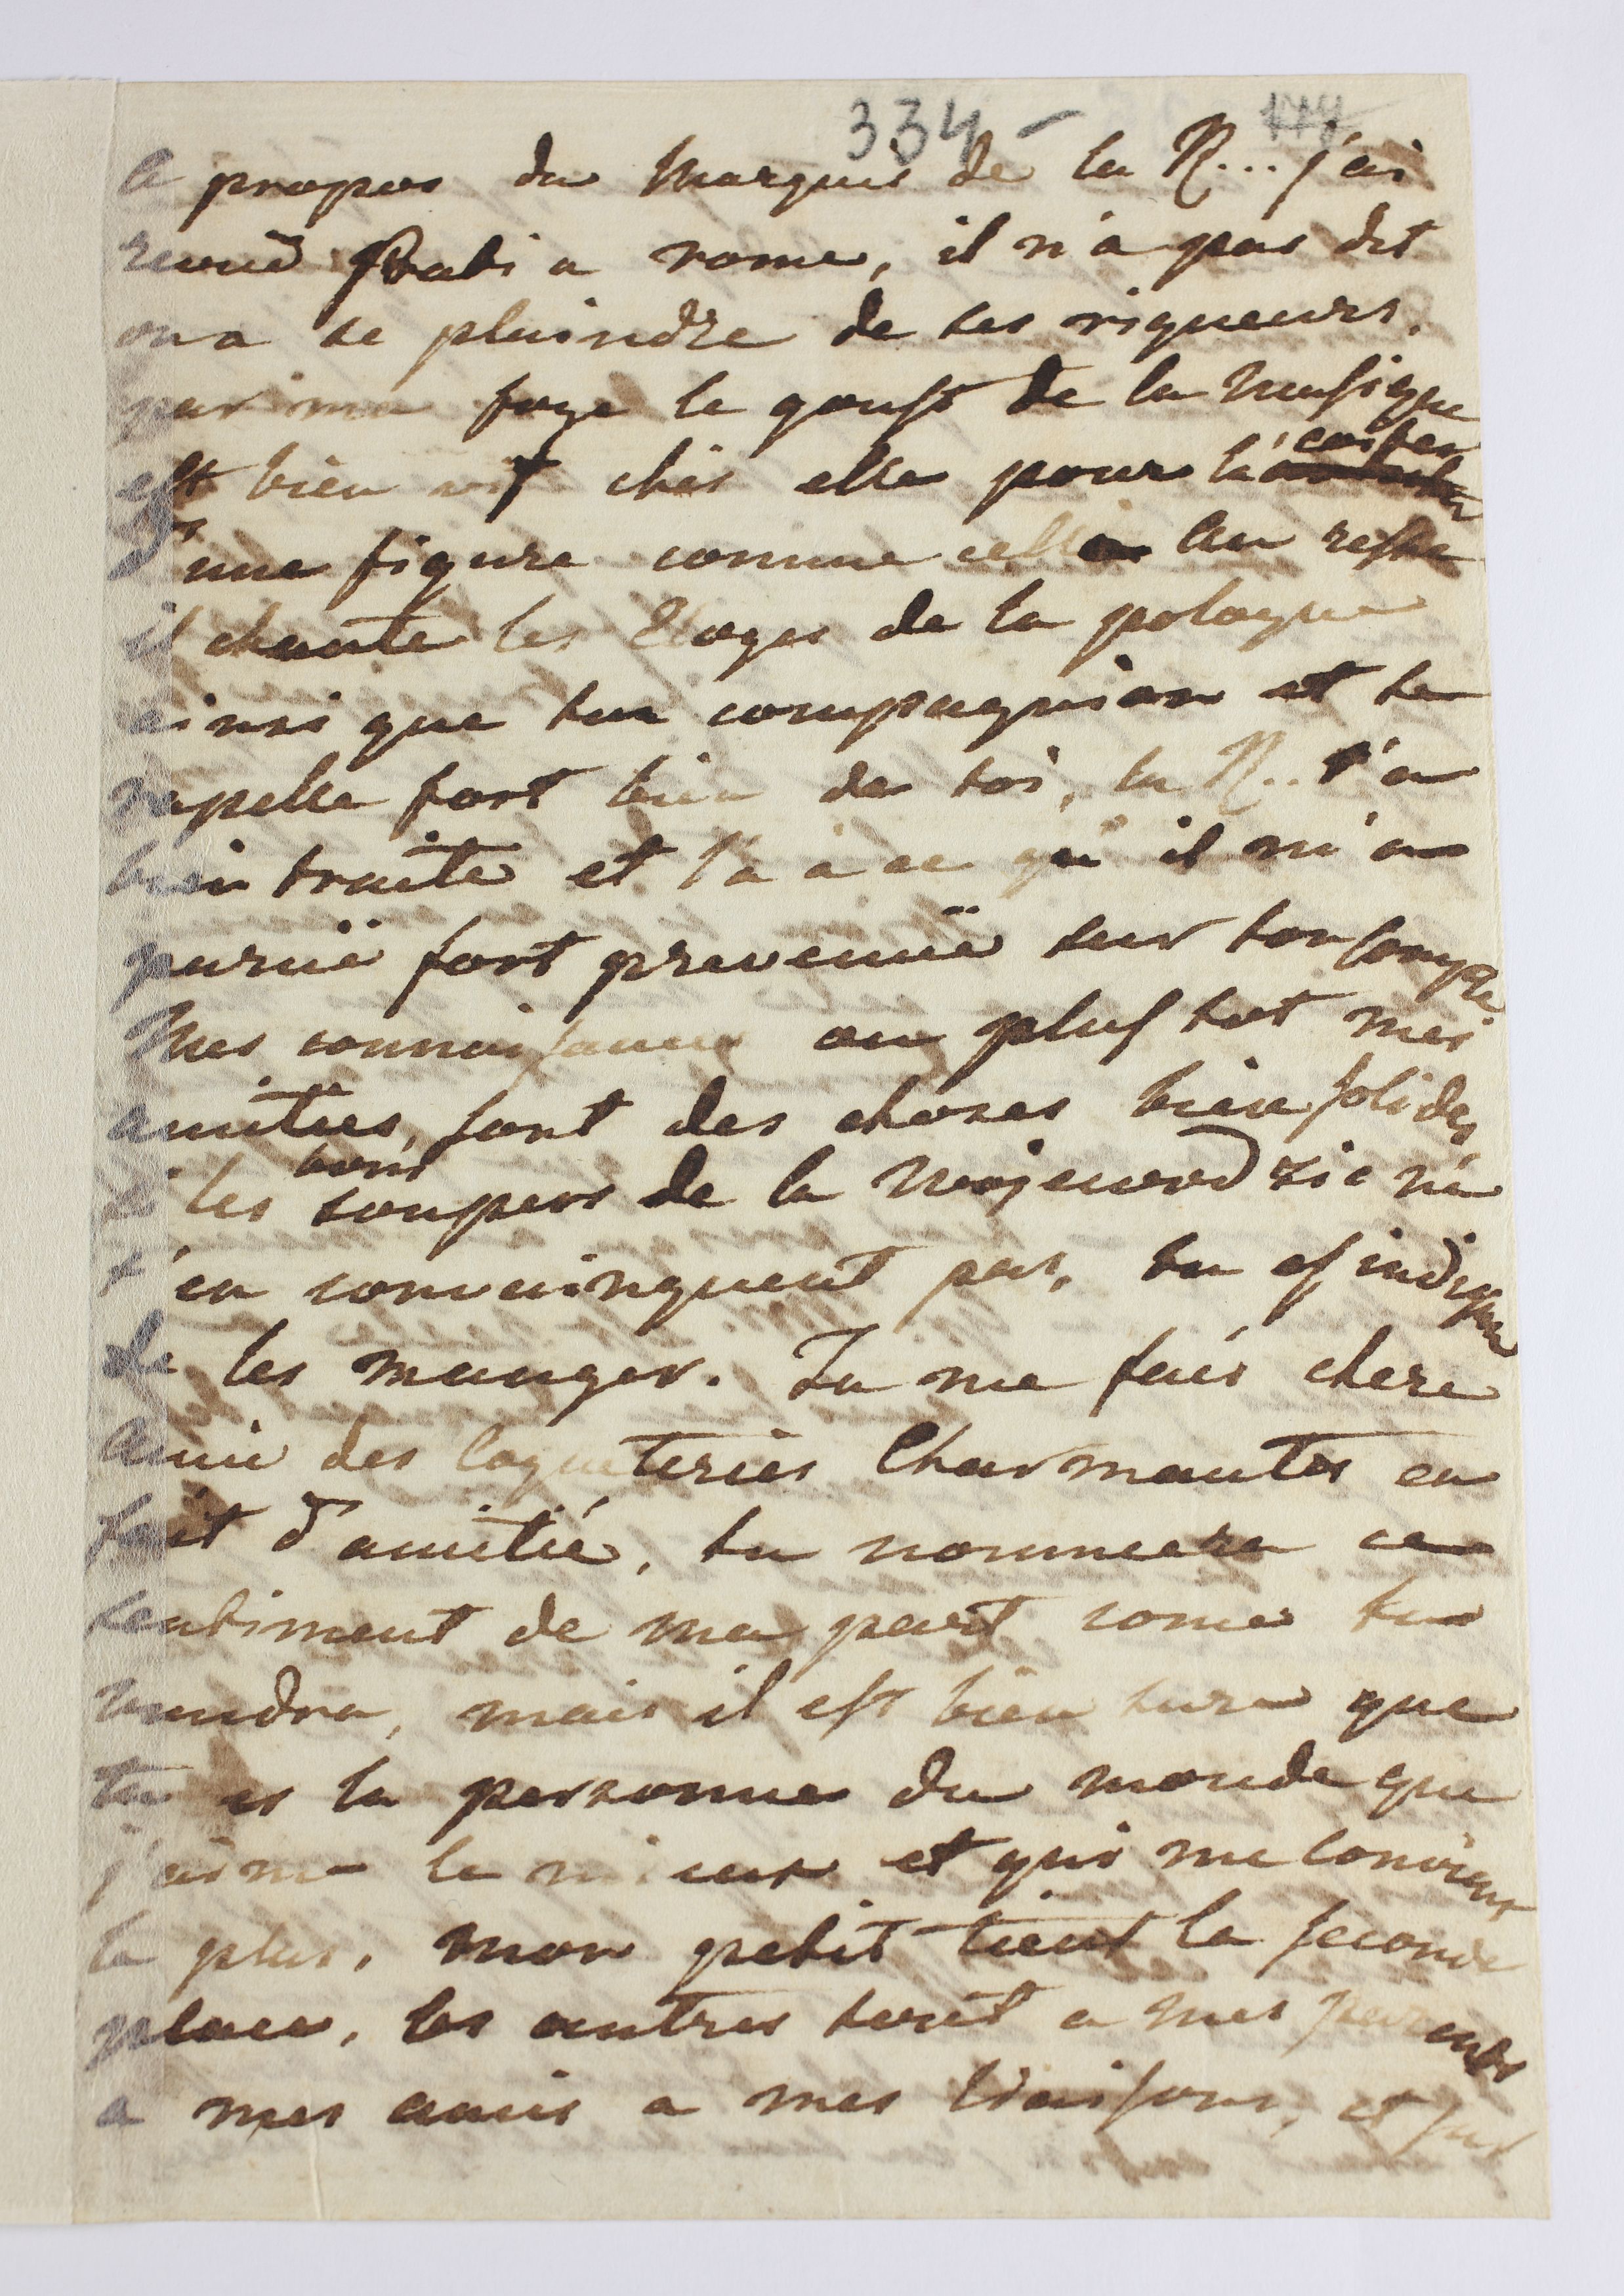 334 - 114
a propos du Marquis de la R... j'ai
revue Prati a rome, il n'a pas dit
on a se plaindre de ses rigueurs.
par ma foye le goust de la Musique
est bien vif chés elle pour
d'une figure comme Au reste
il chante les Eloges de la pologne
ainsi que son compagnion et se
rapelle fort bien de toi, la R.. t'a
bien traité et l'a a ce qu'il m'a
paruë fort prevenuë sur ton compte
Mes connaissances ou plustot mes
amitiés, sont des choses bien solides
si les bons soupers de la Wojewodzina
t'en convainquent pas, tu es indigne
de les manger. Tu me fais chere
amie des Coqueteries Charmantes en
fait d'amitié, tu nommera ce
sentiment de ma part come tu
voudra, mais il est bien sure que
tu es la personne du monde que
j'aime le mieux et qui me convient
le plus, mon petit tient la seconde
place, les autres sont a mes parents
a mes amis a mes liaisons, et sur